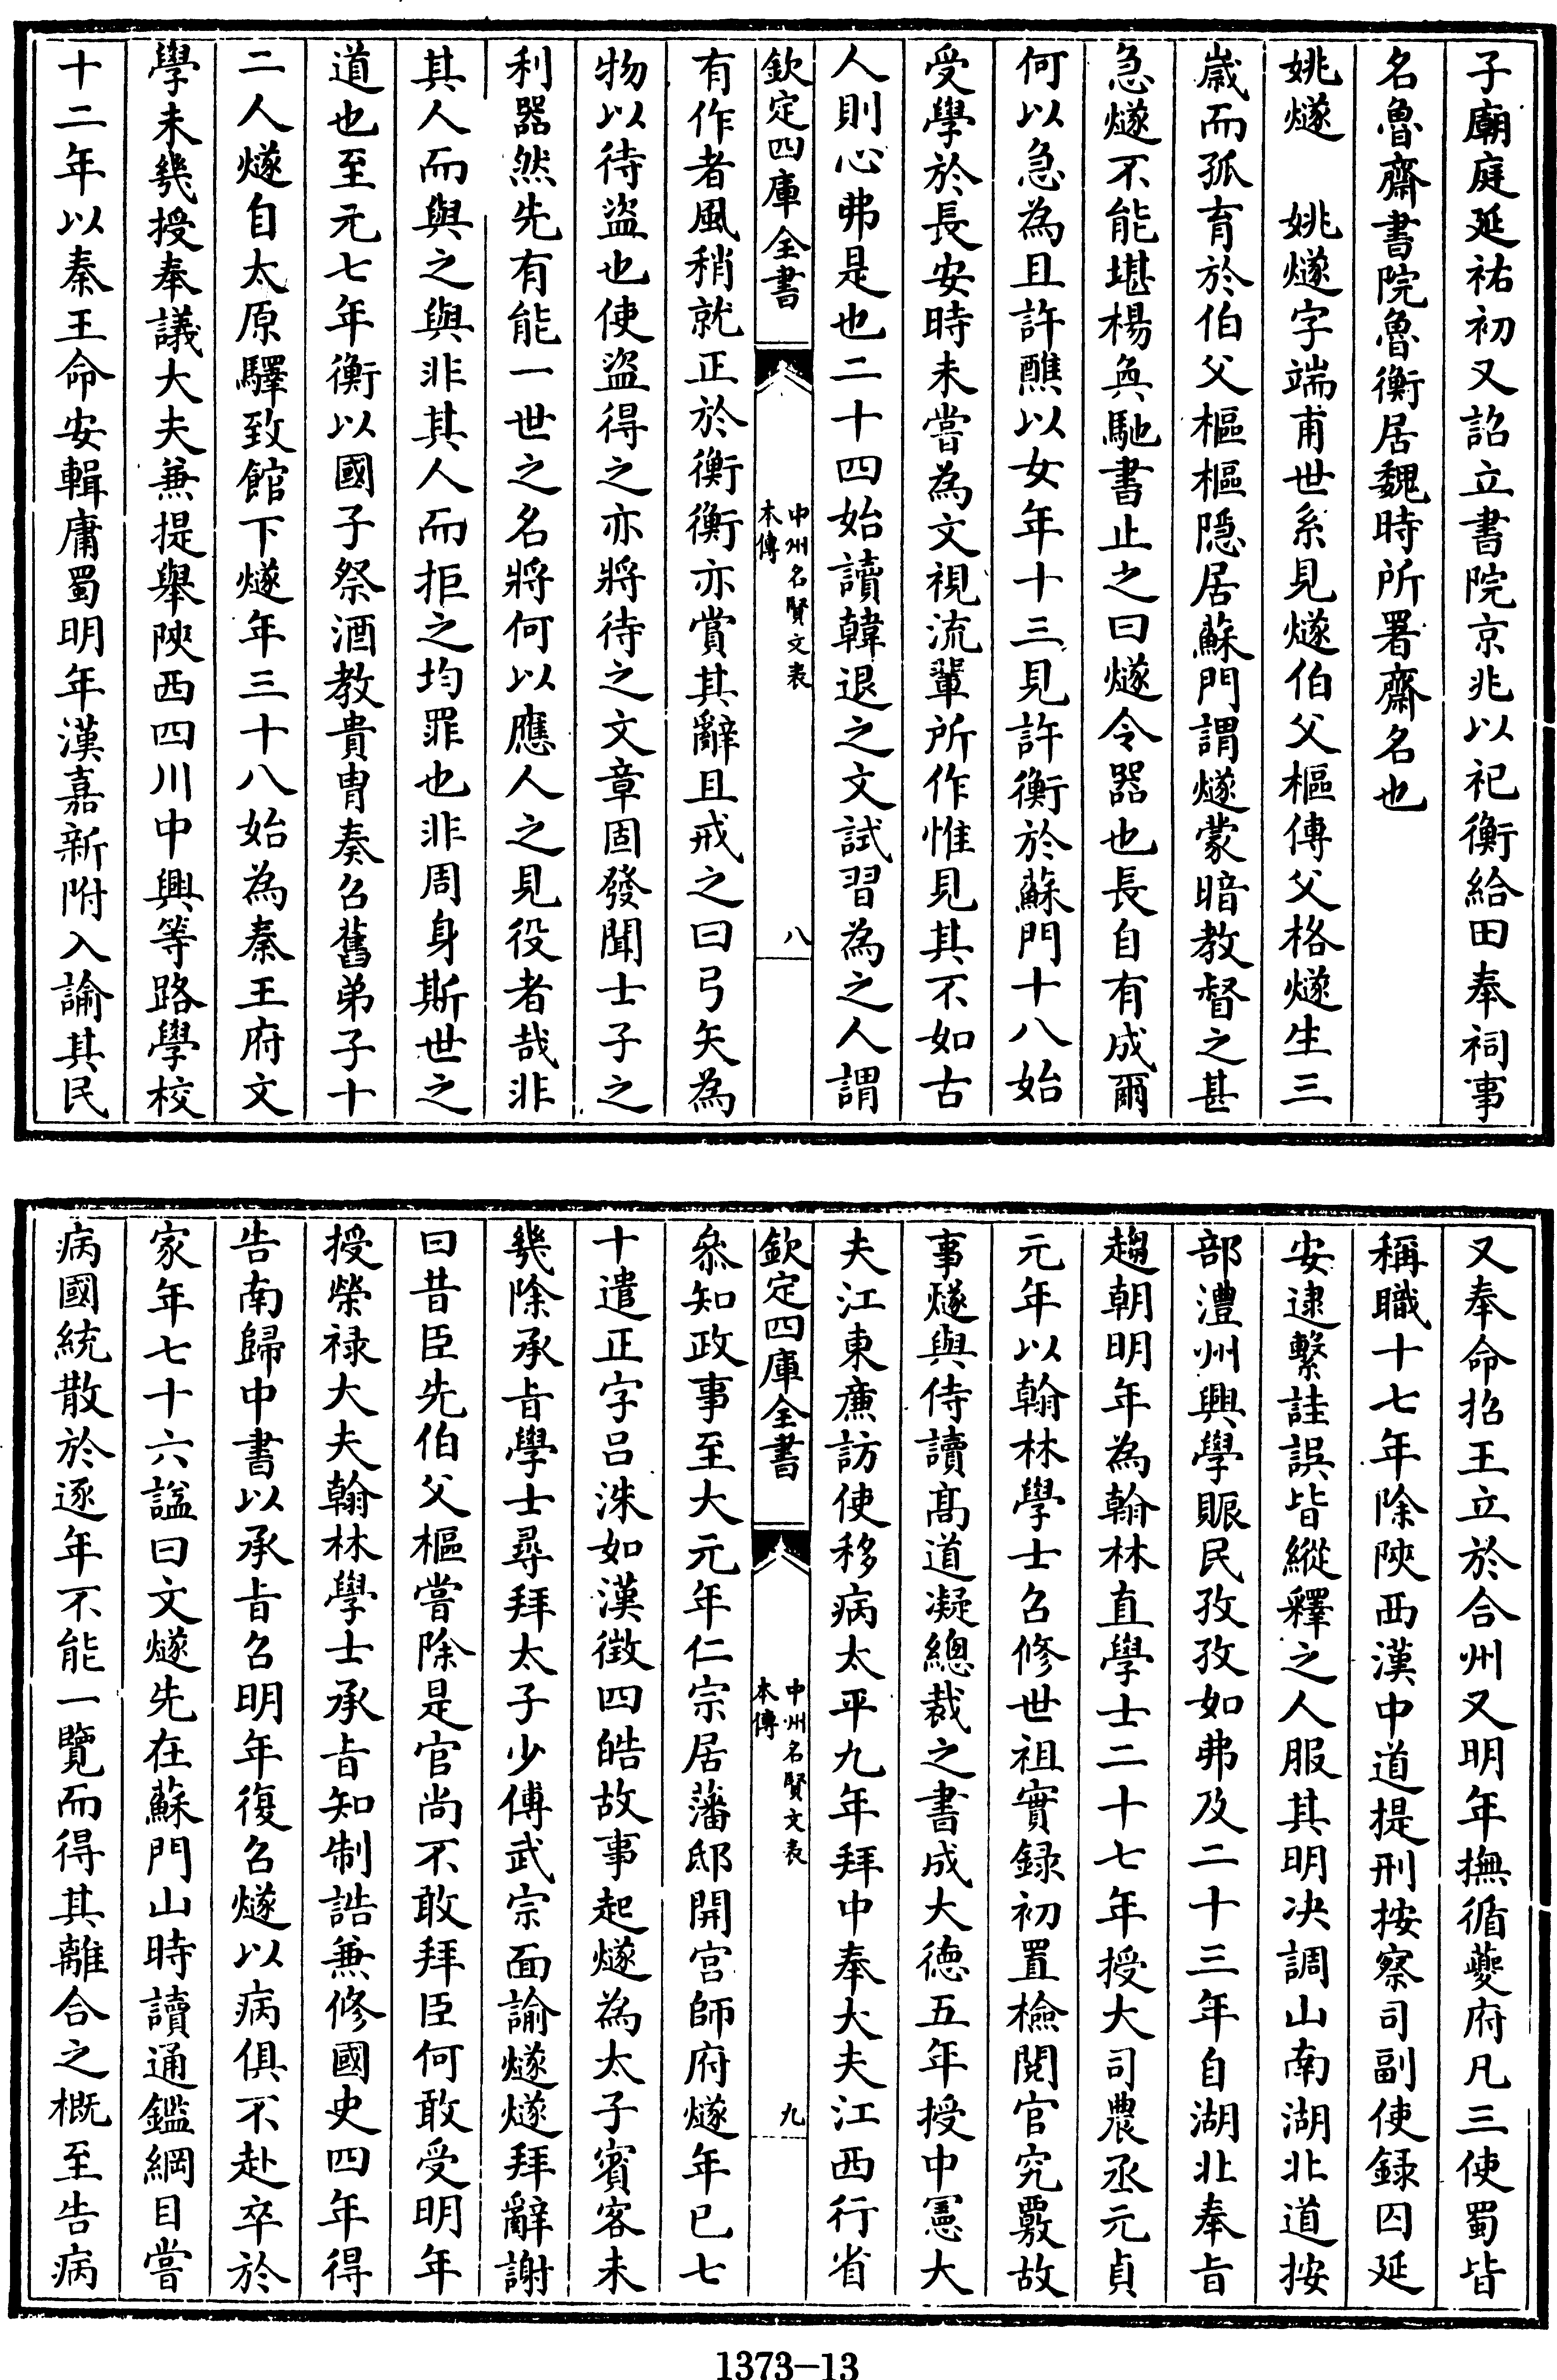 子廟庭延祐初又詔立書院京兆以祀衡給田奉祠事
名魯齋書院魯衡居魏時所署齋名也
姚燧　姚燧字端甫世系見燧伯父樞傳父格燧生三
歳而孤育於伯父樞樞隠居蘇門謂燧蒙暗教督之甚
急燧不能堪楊奐馳書止之曰燧令器也長自有成爾
何以急為且許醮以女年十三見許衡於蘇門十八始
受學於長安時未嘗為文視流輩所作惟見其不如古
人則心弗是也二十四始讀韓退之文試習為之人謂
欽定四庫全書
中州名賢文表
本傳
八
有作者風稍就正於衡衡亦賞其辭且戒之曰弓矢為
物以待盜也使盜得之亦將待之文章固發聞士子之
利器然先有能一世之名將何以應人之見役者哉非
其人而與之與非其人而拒之均罪也非周身斯世之
道也至元七年衡以國子祭酒教貴胄奏召舊弟子十
二人燧自太原驛致館下燧年三十八始為秦王府文
學未㡬授奉議大夫兼提舉陜西四川中興等路學校
十二年以秦王命安輯庸蜀明年漢嘉新附入諭其民
又奉命招王立於合州又明年撫循夔府凡三使蜀皆
稱職十七年除陜西漢中道提刑按察司副使録囚延
安逮繫詿誤皆縱釋之人服其明决調山南湖北道按
部澧州興學賑民孜孜如弗及二十三年自湖北奉旨
趨朝明年為翰林直學士二十七年授大司農丞元貞
元年以翰林學士召修世祖實録初置檢閱官究覈故
事燧與侍讀高道凝總裁之書成大徳五年授中憲大
夫江東㢘訪使移病太平九年拜中奉大夫江西行省
欽定四庫全書
中州名賢文表
本傳
九
叅知政事至大元年仁宗居藩邸開宫師府燧年已七
十遣正字吕洙如漢徴四皓故事起燧為太子賓客未
㡬除承旨學士尋拜太子少傅武宗面諭燧燧拜辭謝
曰昔臣先伯父樞嘗除是官尚不敢拜臣何敢受明年
授榮禄大夫翰林學士承旨知制誥兼修國史四年得
告南歸中書以承旨召明年復召燧以病俱不赴卒於
家年七十六諡曰文燧先在蘇門山時讀通鑑綱目嘗
病國統散於逐年不能一覽而得其離合之概至告病
1373—13